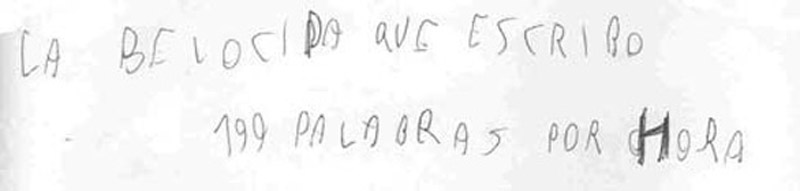 LA BELOCIDA QUE ESCRIBO
199 PALABRAS POR HORA